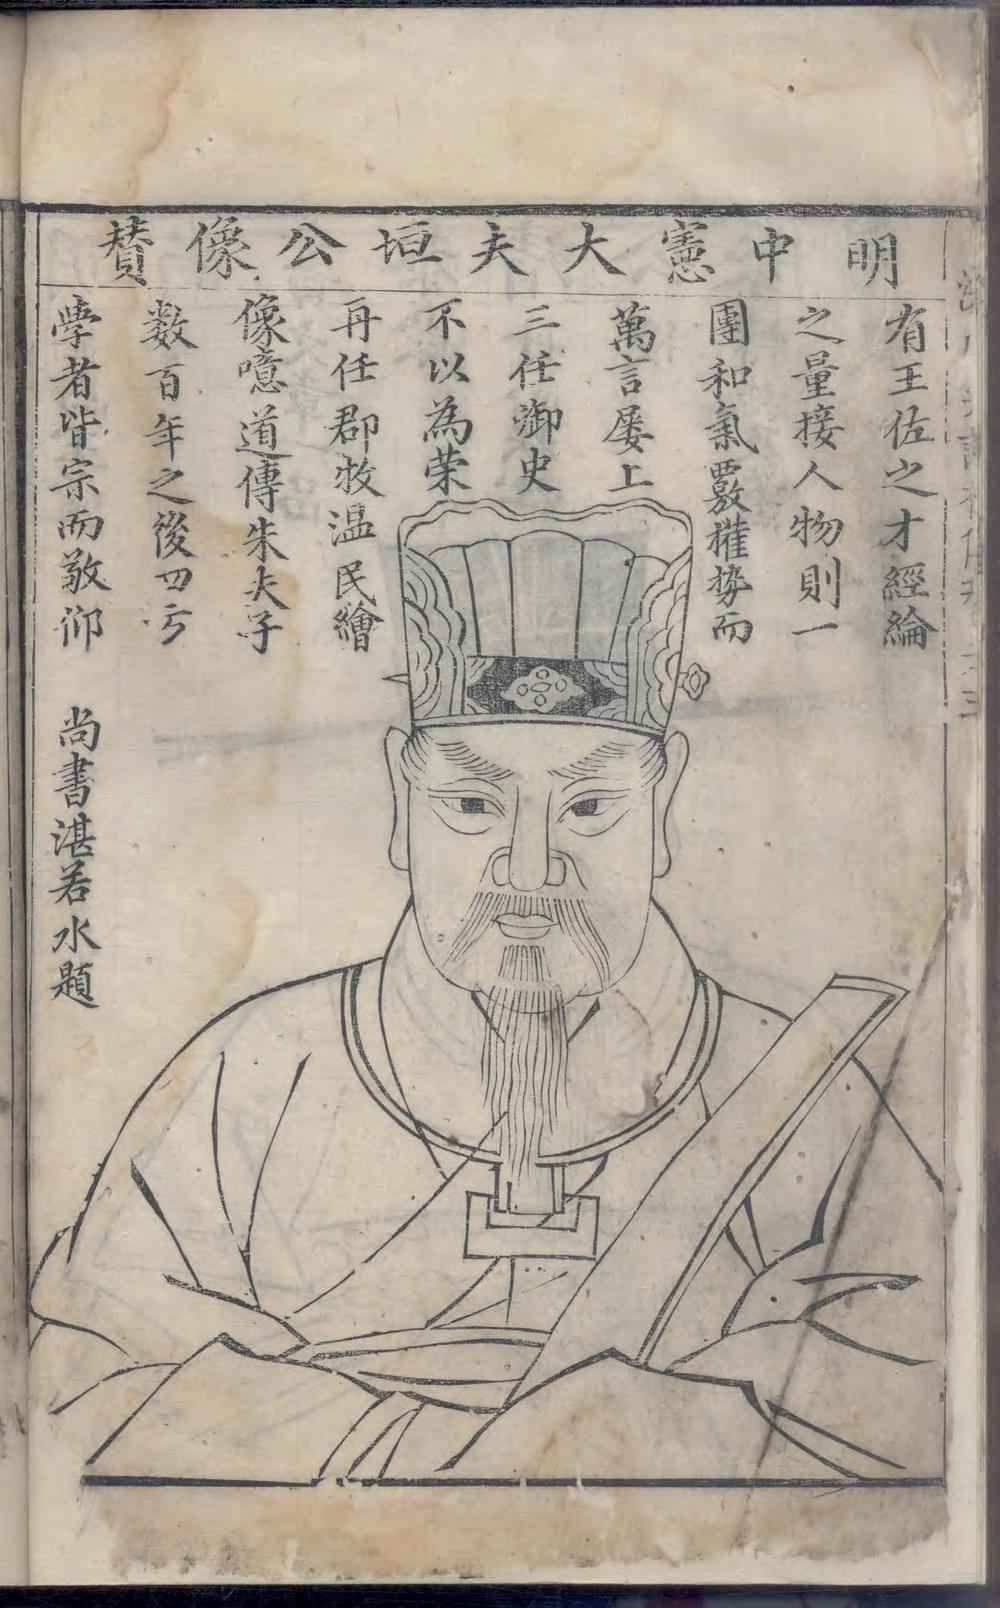 明中憲大夫垣公像贊
有王佐之才經綸
之量接人物則一
團和氣覈權勢而
萬言屡上
三任御史
不以為荣
再任郡牧温民繪
像噫道傳朱夫子
数百年之後四方
學者皆宗而敬仰
尚書湛若水題